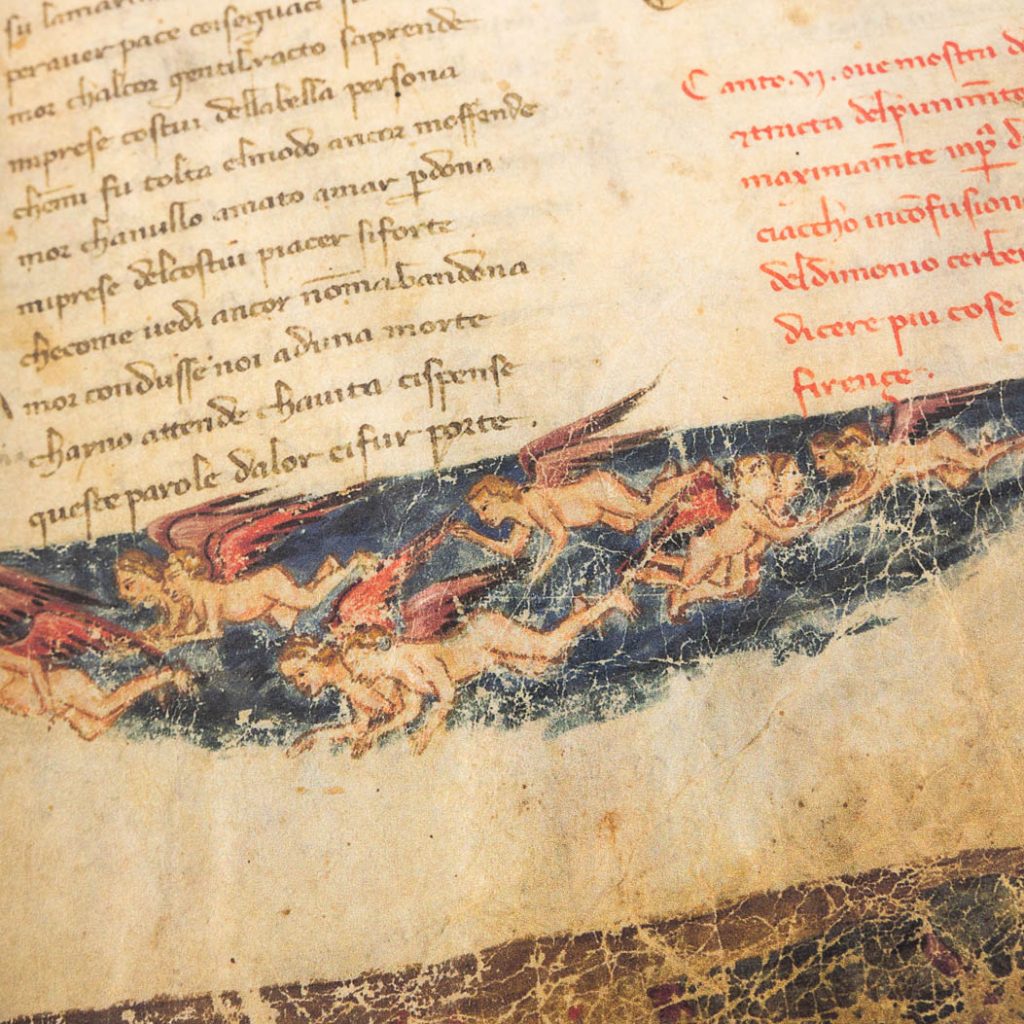 su lamarin
perauer pace coiseguaci su
mor chalcor gentilracto saprende
miprese costui dellabella persona
chemi fu tolta elmodo ancor moffende
mor chanullo amato amar pdona
miprese delcostui piacer siforte
checome uedi ancor nōmabandona
Amor condusse noi aduna morte
charno attende chauita cispense
queste parole dalor cifur porte .
Canto . vj . oue mostra d
ttracta delpunimēto
maximamēte inp d
ciaccho incōfusion
deldimonio cerber
dicere piu cose
firençe .